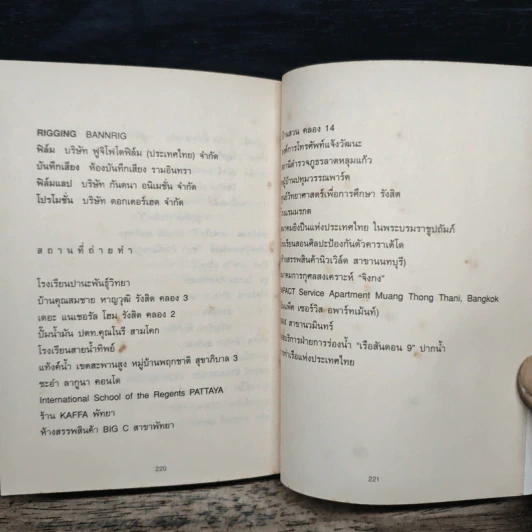 RIGGING BANNRIG
ฟิล์ม บริษัท ฟูจิโฟโต้ฟิล์ม (ประเทศไทย) จำกัด
บันทึกเสียง ห้องบันทึกเสียง รามอินทรา
ฟิล์มแลป บริษัท กันตนา อนิเมชั่น จำกัด
โปรโมชั่น บริษัท ดอกเตอร์เฮด จำกัด
สถานที่ถ่ายทำ
โรงเรียนปานะพันธุ์วิทยา
บ้านคุณสมชาย หาญวุฒิ รังสิต คลอง 3
เดอะ แนเชอรัล โฮม รังสิต คลอง 2
ปั๊มน้ำมัน ปตท.คุณโนรี สามโคก
โรงเรียนสายน้ำทิพย์
แท้งค์น้ำ เขตสะพานสูง หมู่บ้านพฤกชาติ สุขาภิบาล 3
ชะอำ ลากูนา คอนโด
International School of the Regents PATTAYA
ร้าน KAFFA พัทยา
ห้างสรรพสินค้า BIG C สาขาพัทยา
220
สวน คลอง 14
การโทรศัพท์แจ้งวัฒนะ
ตำรวจภูธรลาดหลุมแก้ว
บ้านปทุมวรรณพาร์ค
วิทยาศาสตร์เพื่อการศึกษา รังสิต
แรมมรกต
ยิงเป็นแห่งประเทศไทย ในพระบรมราชูปถัมภ์
เรียนสอนศิลปะป้องกันตัวคาราเต้โด
สรรพสินค้านิวเวิล์ด สาขานนทบุรี)
การกุศลสงเคราะห์ "จิงกง"
Service Apartment Muang Thong Thani, Bangkok
เซอร์วิส อพาร์ทเม้นท์)
สาขานวมินทร์
บริการฝ่ายการร่องน้ำ "เรือสันดอน 9" ปากน้ำ
ท่าเรือแห่งประเทศไทย
221